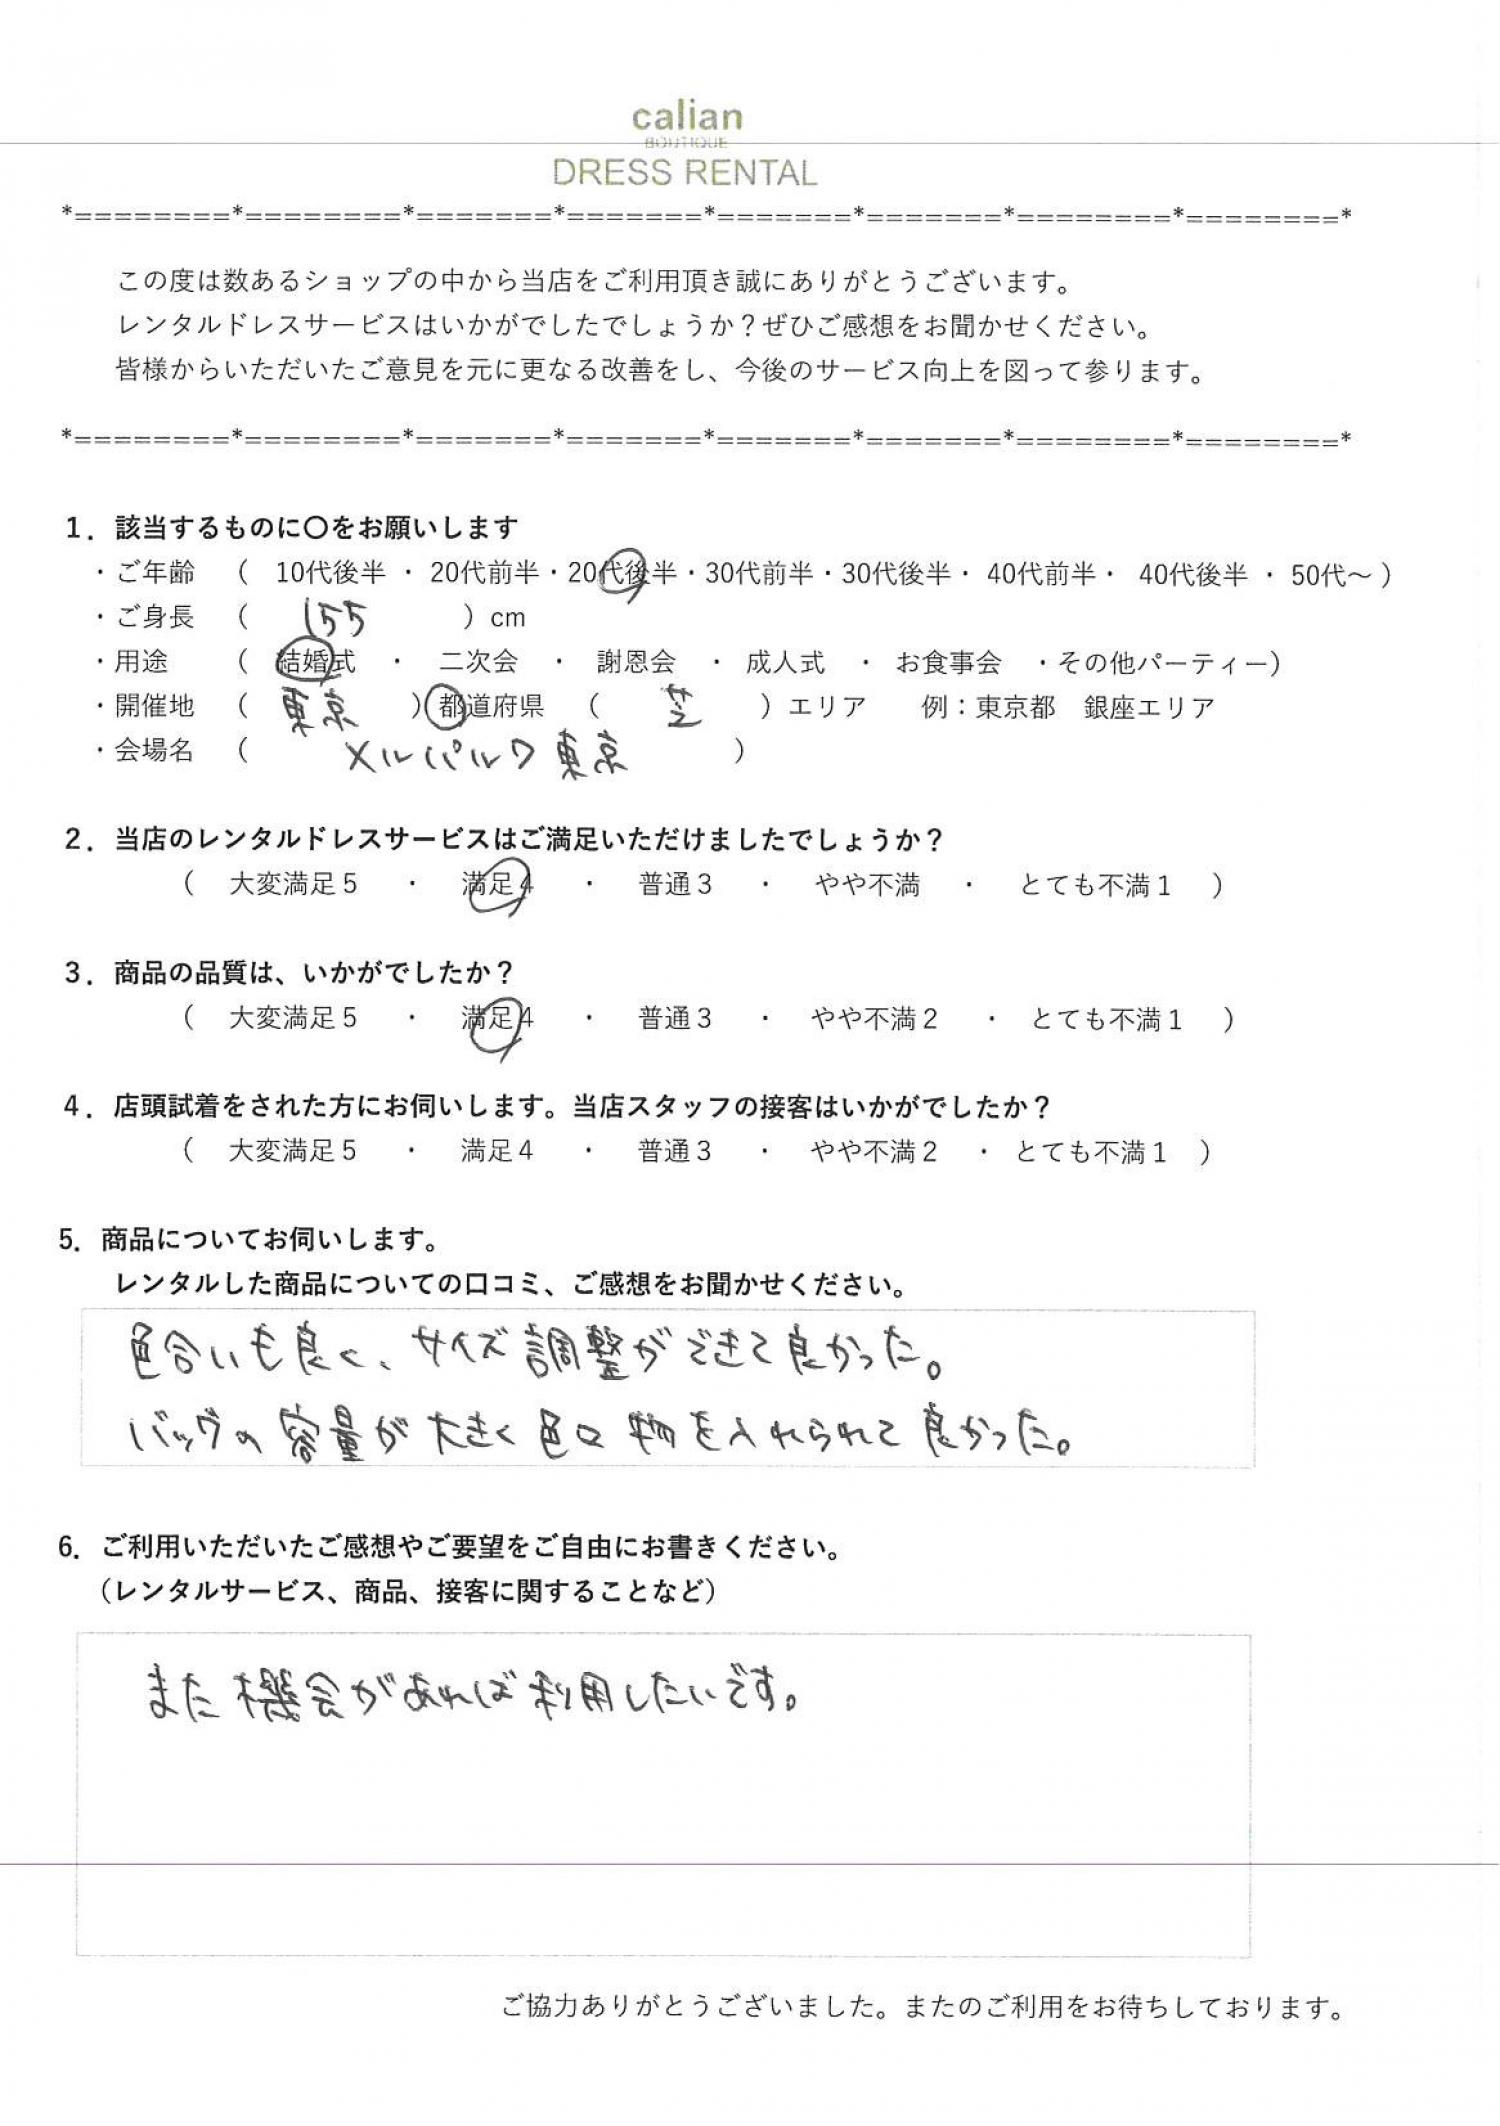 calian
BOUTIQUE
DRESS RENTAL
*========*========*=======*=======*=======*=======*========*========*
この度は数あるショップの中から当店をご利用頂き誠にありがとうございます。
レンタルドレスサービスはいかがでしたでしょうか？ぜひご感想をお聞かせください。
皆様からいただいたご意見を元に更なる改善をし、今後のサービス向上を図って参ります。
*========*========*=======*=======*=======*=======*========*========*
1．該当するものに〇をお願いします
・ご年齢 （ 10代後半 ・ 20代前半・20代後半・30代前半・30代後半・ 40代前半・ 40代後半 ・ 50代～ ）
・ご身長 （ 155 ）cm
・用途 （ 結婚式 ・ 二次会 ・ 謝恩会 ・ 成人式 ・ お食事会 ・その他パーティー）
・開催地 （ 東京 ）都道府県 （ 芝 ）エリア 例：東京都 銀座エリア
・会場名 （ メルパルク東京 ）
2．当店のレンタルドレスサービスはご満足いただけましたでしょうか？
（ 大変満足５ ・ 満足４ ・ 普通３ ・ やや不満 ・ とても不満１ ）
3．商品の品質は、いかがでしたか？
（ 大変満足５ ・ 満足４ ・ 普通３ ・ やや不満２ ・ とても不満１ ）
4．店頭試着をされた方にお伺いします。当店スタッフの接客はいかがでしたか？
（ 大変満足５ ・ 満足４ ・ 普通３ ・ やや不満２ ・ とても不満１ ）
5．商品についてお伺いします。
レンタルした商品についての口コミ、ご感想をお聞かせください。
色合いも良く、サイズ調整ができて良かった。
バッグの容量が大きく色々物を入れられて良かった。
6．ご利用いただいたご感想やご要望をご自由にお書きください。
（レンタルサービス、商品、接客に関することなど）
また機会があれば利用したいです。
ご協力ありがとうございました。またのご利用をお待ちしております。